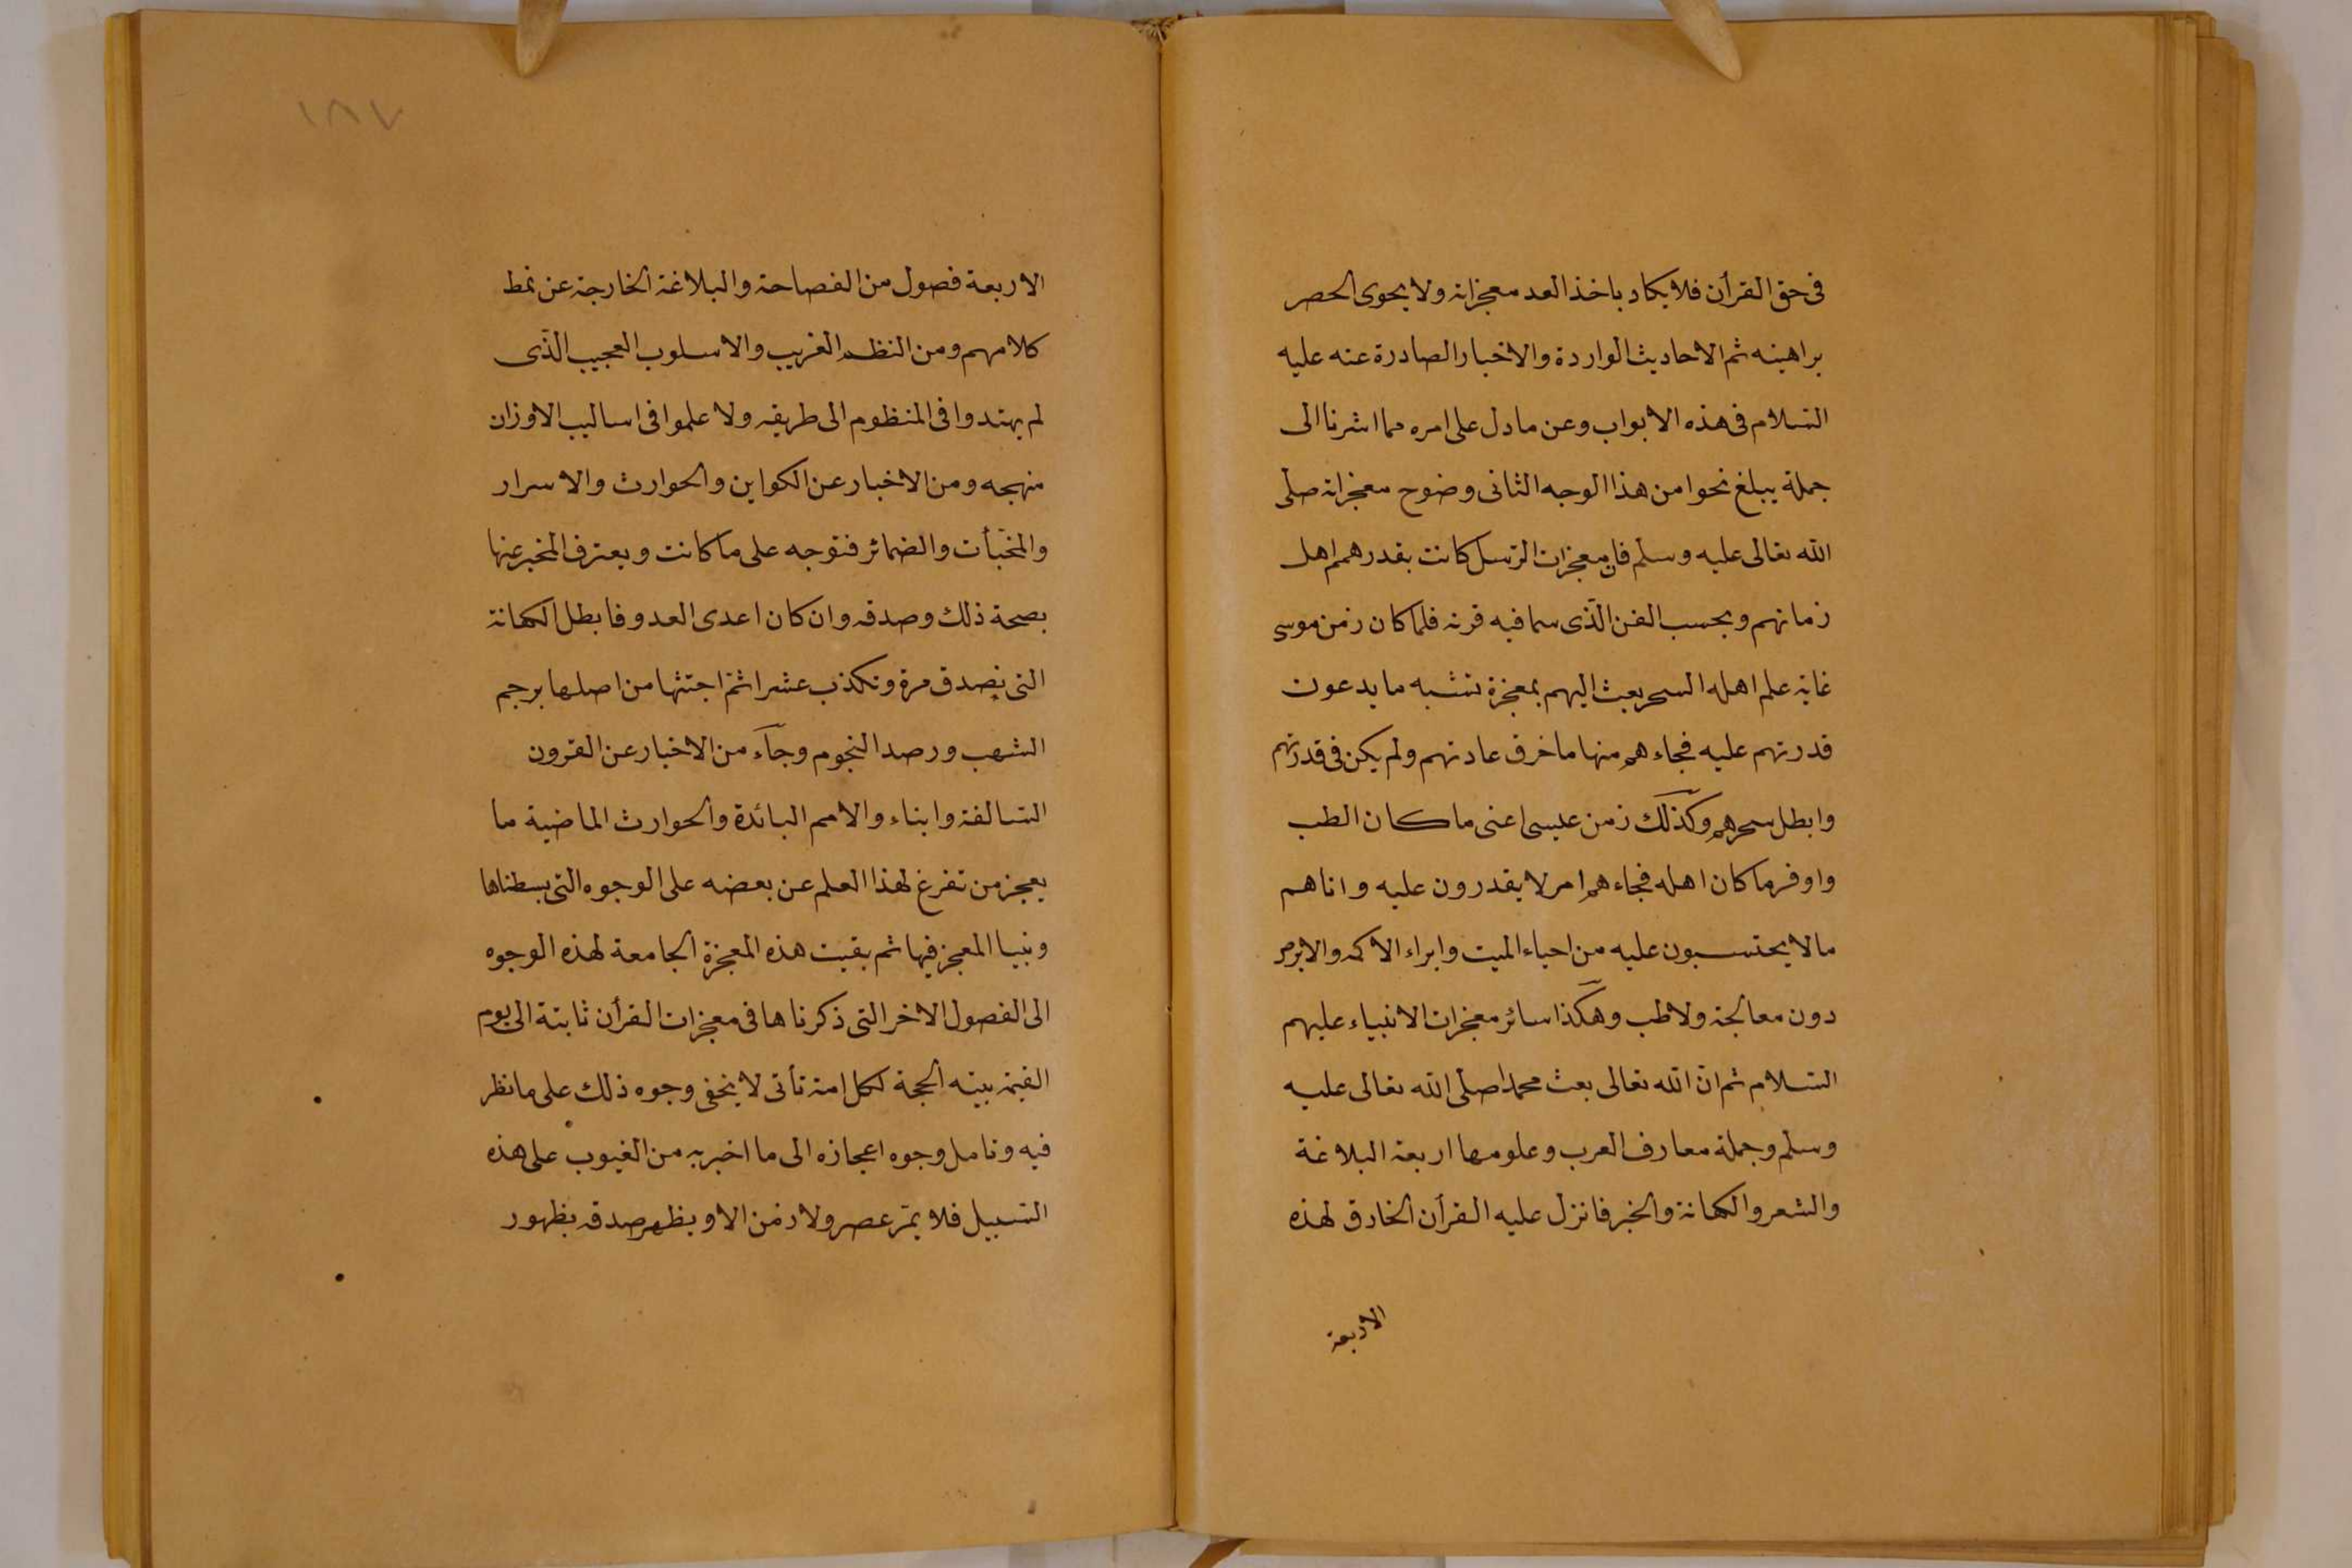 فى حق القرأن فلا يكاد ياخذ العد معجزاته ولا يحوى الحصر
براهينه ثم الاحاديث الواردة والاخبار الصادرة عنه عليه
السّلام فى هذه الابواب وعن ما دل على امره مما اشرنا الى
جملة يبلغ نحوا من هذا الوجه الثانى وضوح معجزاته صلى
الله تعالى عليه وسلم فان معجزات الرّسل كانت بقدر همم اهل
زمانهم وبحسب الفن الّذى سما فيه قرنه فلما كان زمن موسى
غاية علم اهله السحر بعث اليهم بمعجزة تشبه ما يدعون
قدرتهم عليه فجاءهم منها ما خرق عادتهم ولم يكن فى قدرتهم
وابطل سحرهم وكذلك زمن عيسى اغنى ما كان الطب
واوفر ما كان اهله فجاءهم امر لا يقدرون عليه واتاهم
ما لا يحتسبون عليه من احياء الميت وابراء الاكمه والابرص
دون معالجة ولا طب وهكذا سائر معجزات الانبياء عليهم
السّلام ثم انّ الله تعالى بعث محمدا صلى الله تعالى عليه
وسلم وجملة معارف العرب وعلومها اربعة البلاغة
والشعر والكهانة والخبر فانزل عليه القرأن الخارق لهذه
الاربعة
١٨٧
الاربعة فصول من الفصاحة والبلاغة الخارجة عن نمط
كلامهم ومن النظم الغريب والاسلوب العجيب الّذى
لم يهتدوا فى المنظوم الى طريقه ولا علموا فى اساليب الاوزان
منهجه ومن الاخبار عن الكواين والحوارث والاسرار
والمخبّأت والضمائر فتوجه على ما كانت ويعترف المخبر عنها
بصحة ذلك وصدقه وان كان اعدى العدو فابطل الكهانة
التى تصدق مرة وتكذب عشرا ثمّ اجتثها من اصلها برجم
الشهب ورصد النجوم وجآء من الاخبار عن القرون
السّالفة وابناء والامم البائدة والحوارث الماضية ما
يعجز من تفرغ لهذا العلم عن بعضه على الوجوه التى بسطناها
وبنيا المعجز فيها ثم بقيت هذه المعجزة الجامعة لهذه الوجوه
الى الفصول الاخر التى ذكرناها فى معجزات القرأن ثابتة الى يوم
القيمة بينه الحجة لكل امة تأتى لا يخفى وجوه ذلك على ما نظر
فيه وتامل وجوه اعجازه الى ما اخبر به من الغيوب على هذه
السّبيل فلا يمرّ عصر ولا زمن الا ويظهر صدقه بظهور